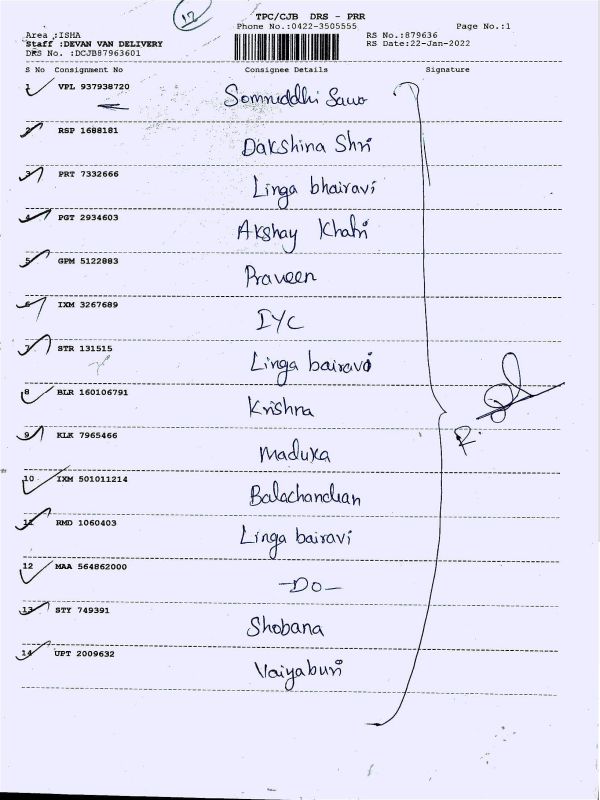 12
TPC/CJB DRS - PRR
Phone No.:0422-3505555 Page No.:1
Area :ISHA RS No.:879636
Staff :DEVAN VAN DELIVERY RS Date:22-Jan-2022
DRS No. :DCJB87963601
S No Consignment No Consignee Details Signature
1 VPL 937938720 Somruddhi
2 RSP 1688181 Dakshina Shri
3 PRT 7332666 Linga bhairavi
4 PGT 2934603 Akshay Khatri
5 GPM 5122883 Praveen
6 IXM 3267689 IYC
7 STR 131515 Linga bairavi
8 BLR 160106791 Krishna
R.
9 KLK 7965466 Maduka
10 IXM 501011214 Balachandran
11 RMD 1060403 Linga bairavi
12 MAA 564862000 -DO-
13 STY 749391 Shobana
14 UPT 2009632 Vaiyaburi